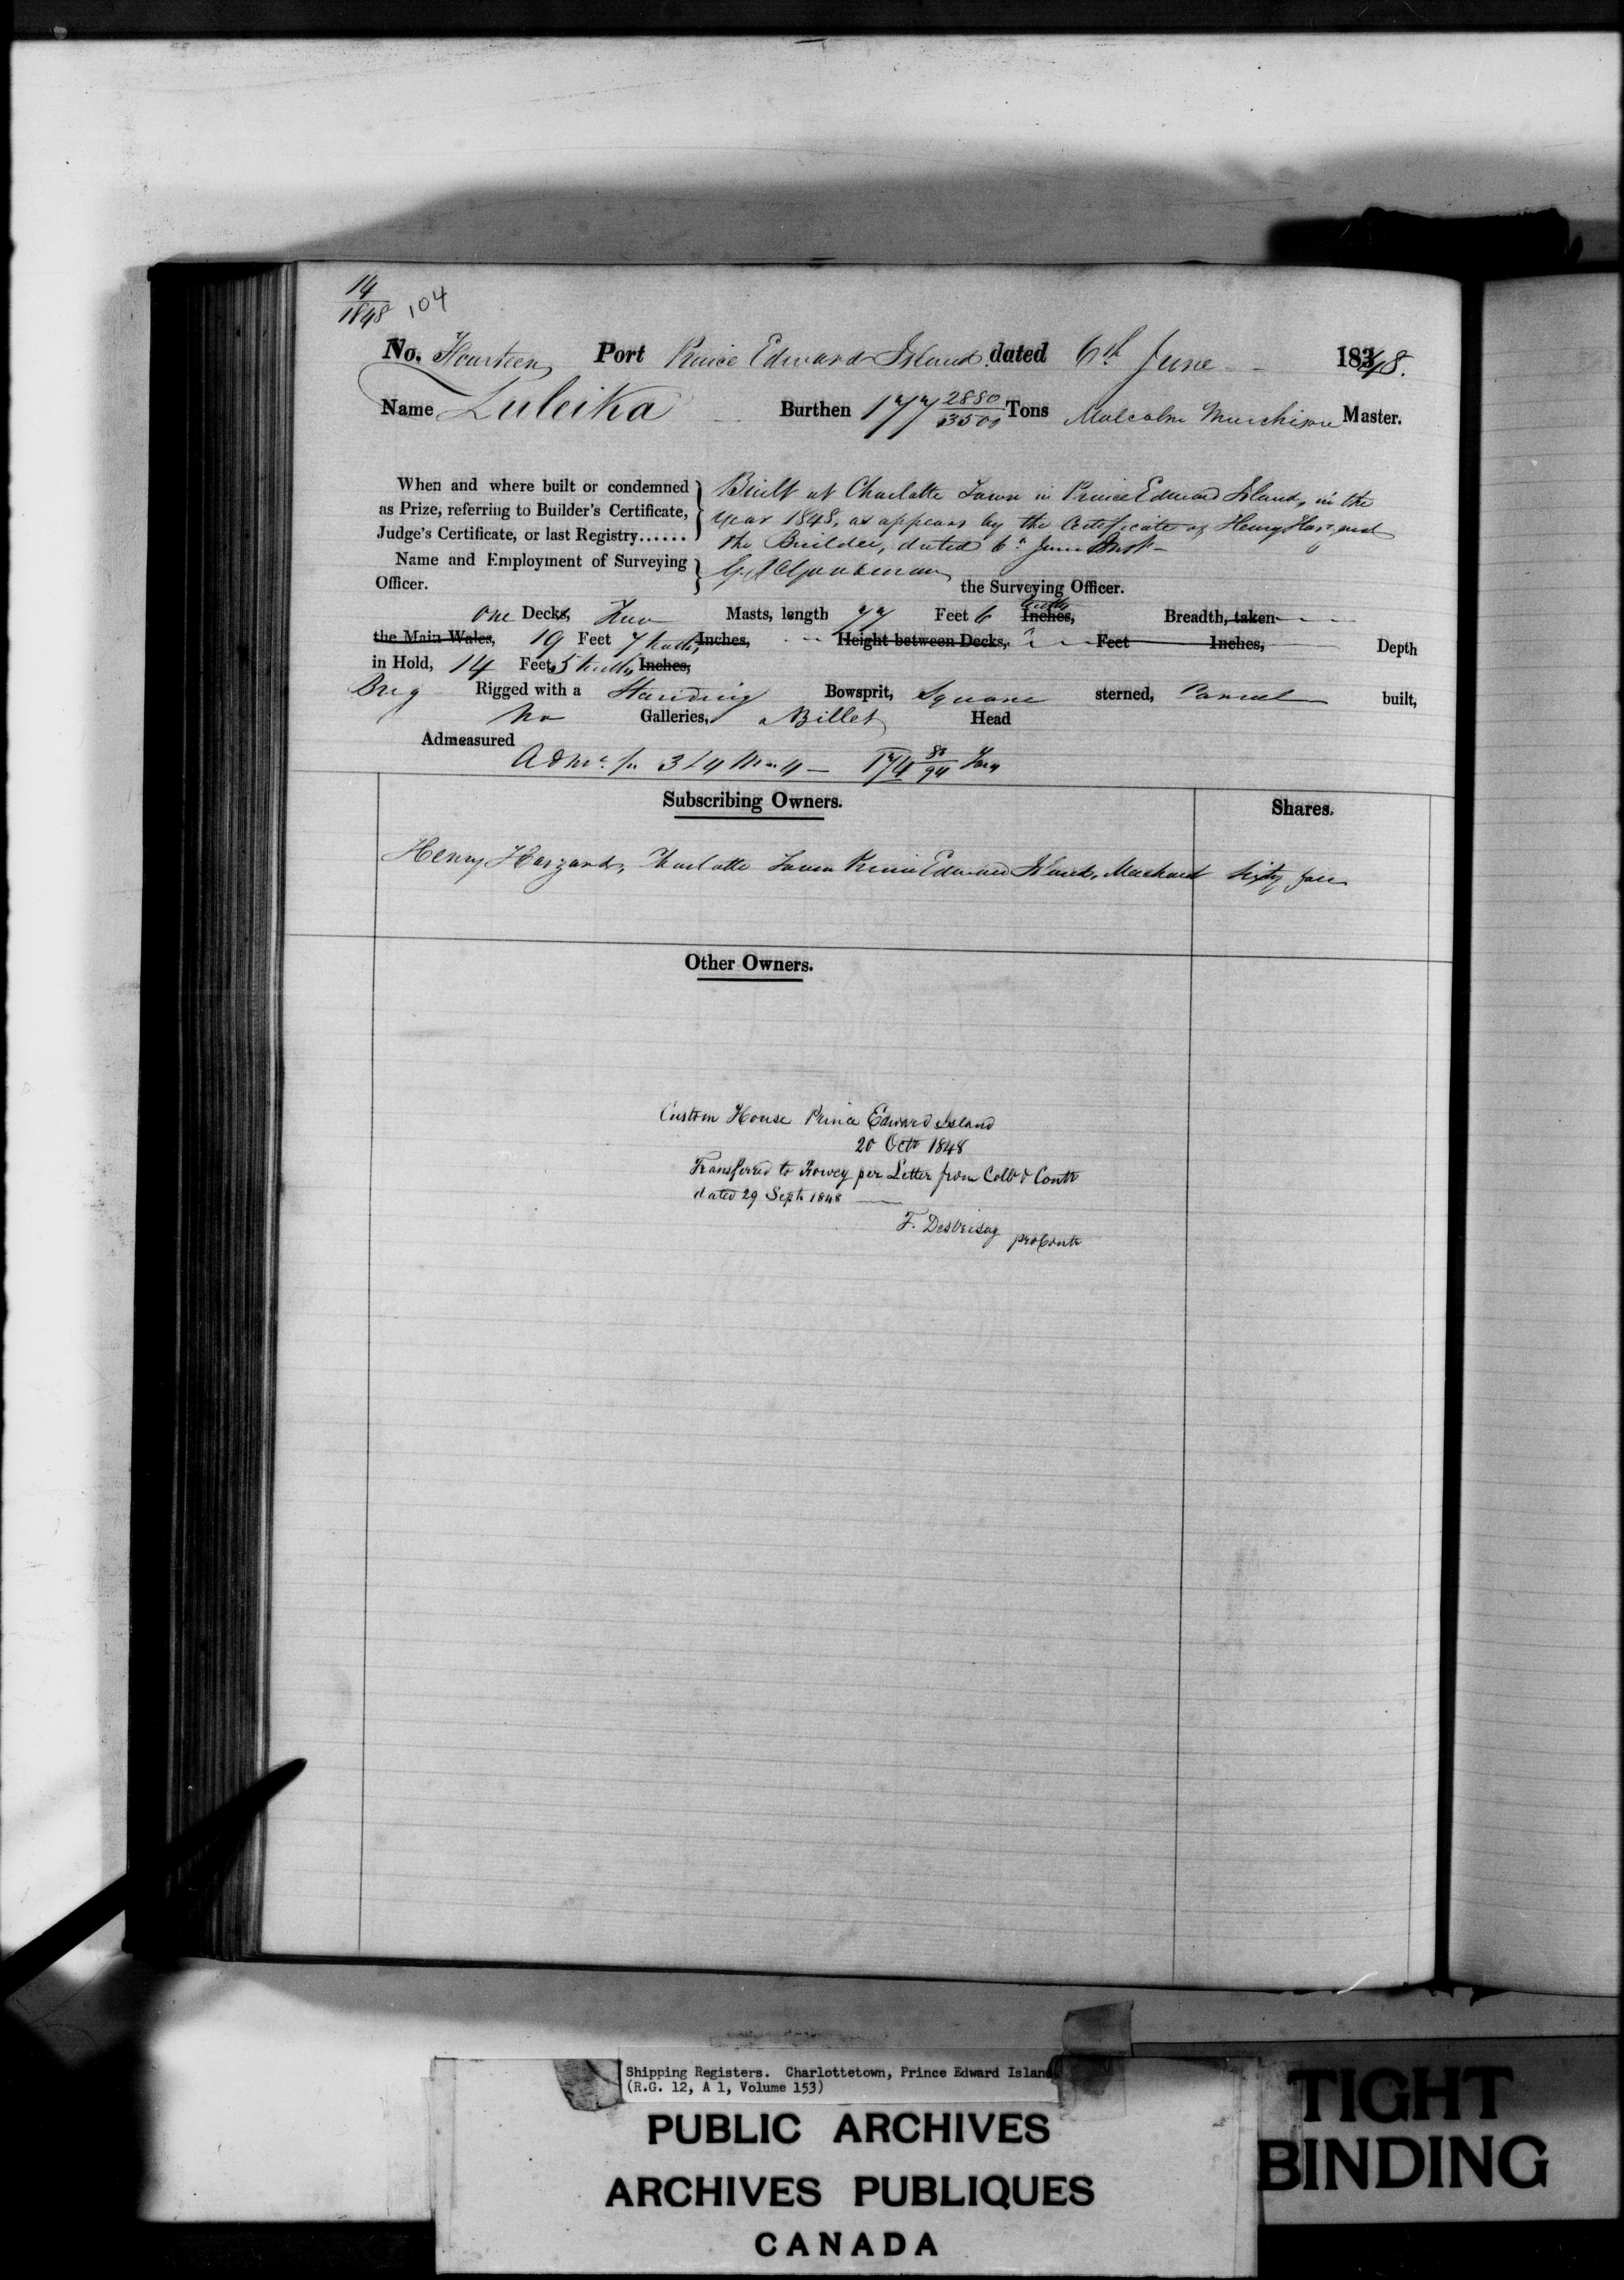 14
1848 104
No. Fourteen Port Prince Edward Island. dated 6th June 1848.
Name Zuleika Burthen 177 2880/3500 Tons Malcolm Murchison Master.
When and where built or condemned
as Prize, referring to Builder's Certificate,
Judge's Certificate, or last Registry......
Built at Charlotte Town in Prince Edward Island, in the
year 1848, as appears by the Certificate of Henry Haszard
the Builder, dated 6th June Inst
Name and Employment of Surveying
Officer.
the Surveying Officer.
One Decks, Two Masts, length 77 Feet 6 tenths Inches, Breadth, taken
the Main Wales, 19 Feet 7 tenths Inches, Height between Decks, Feet Inches, Depth
in Hold, 14 Feet 5 tenths Inches,
Brig Rigged with a Standing Bowsprit, Square sterned, Carvel built,
No Galleries, Billet Head
Admeasured
174 80/94 Tons
Subscribing Owners. Shares.
Henry Haszard, Charlotte Town Prince Edward Island, Merchant Sixty four
Other Owners.
Custom House Prince Edward Island
20 Octr 1848
Transferred to Fowey per Letter from Collr & Contr
dated 29 Septr 1848
F. DesBrisay pro Contr
Shipping Registers. Charlottetown, Prince Edward Island
(R.G. 12, A 1, Volume 153)
PUBLIC ARCHIVES
ARCHIVES PUBLIQUES
CANADA
TIGHT
BINDING